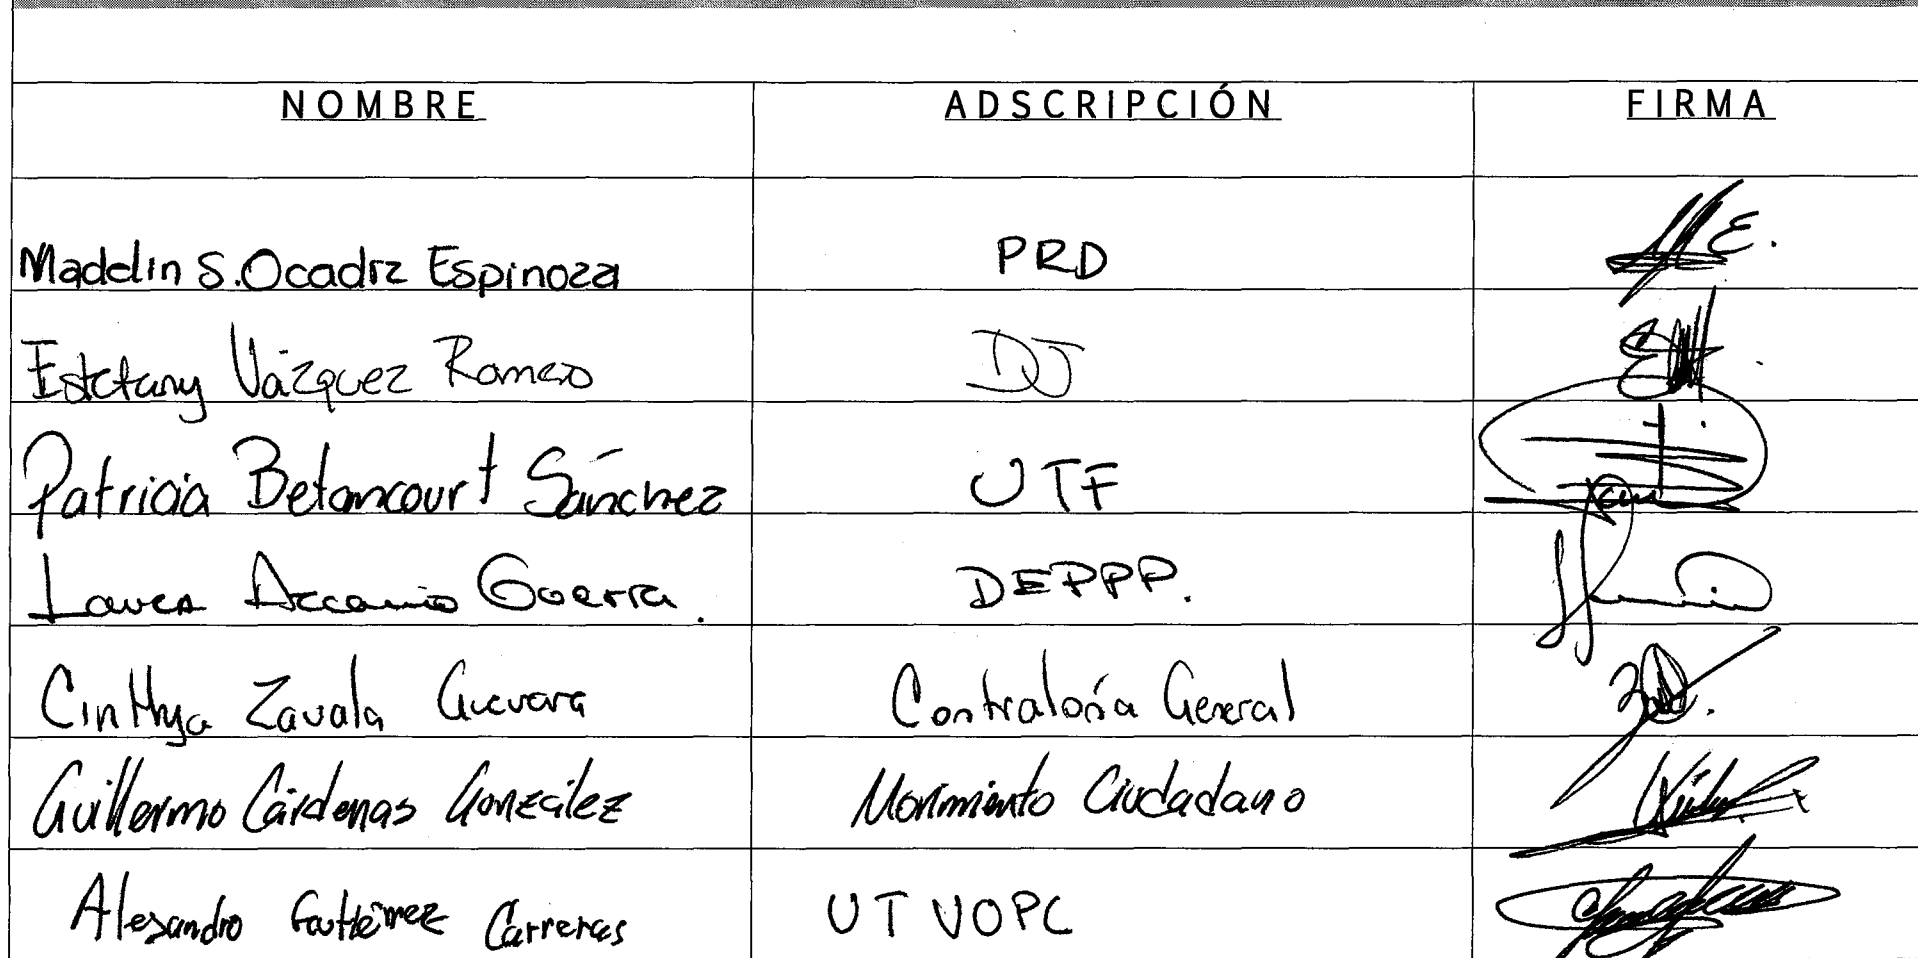 NOMBRE ADSCRIPCIÓN FIRMA
Madelin S. Ocadiz Espinoza PRD
Estefany Vázquez Romero DJ
Patricia Betancourt Sánchez UTF
Laura Guerra. DEPPP.
Cinthya Zavala Guevara Contraloría General
Guillermo Cárdenas González Movimiento Ciudadano
Alejandro Gutiérrez Carreras UTVOPL